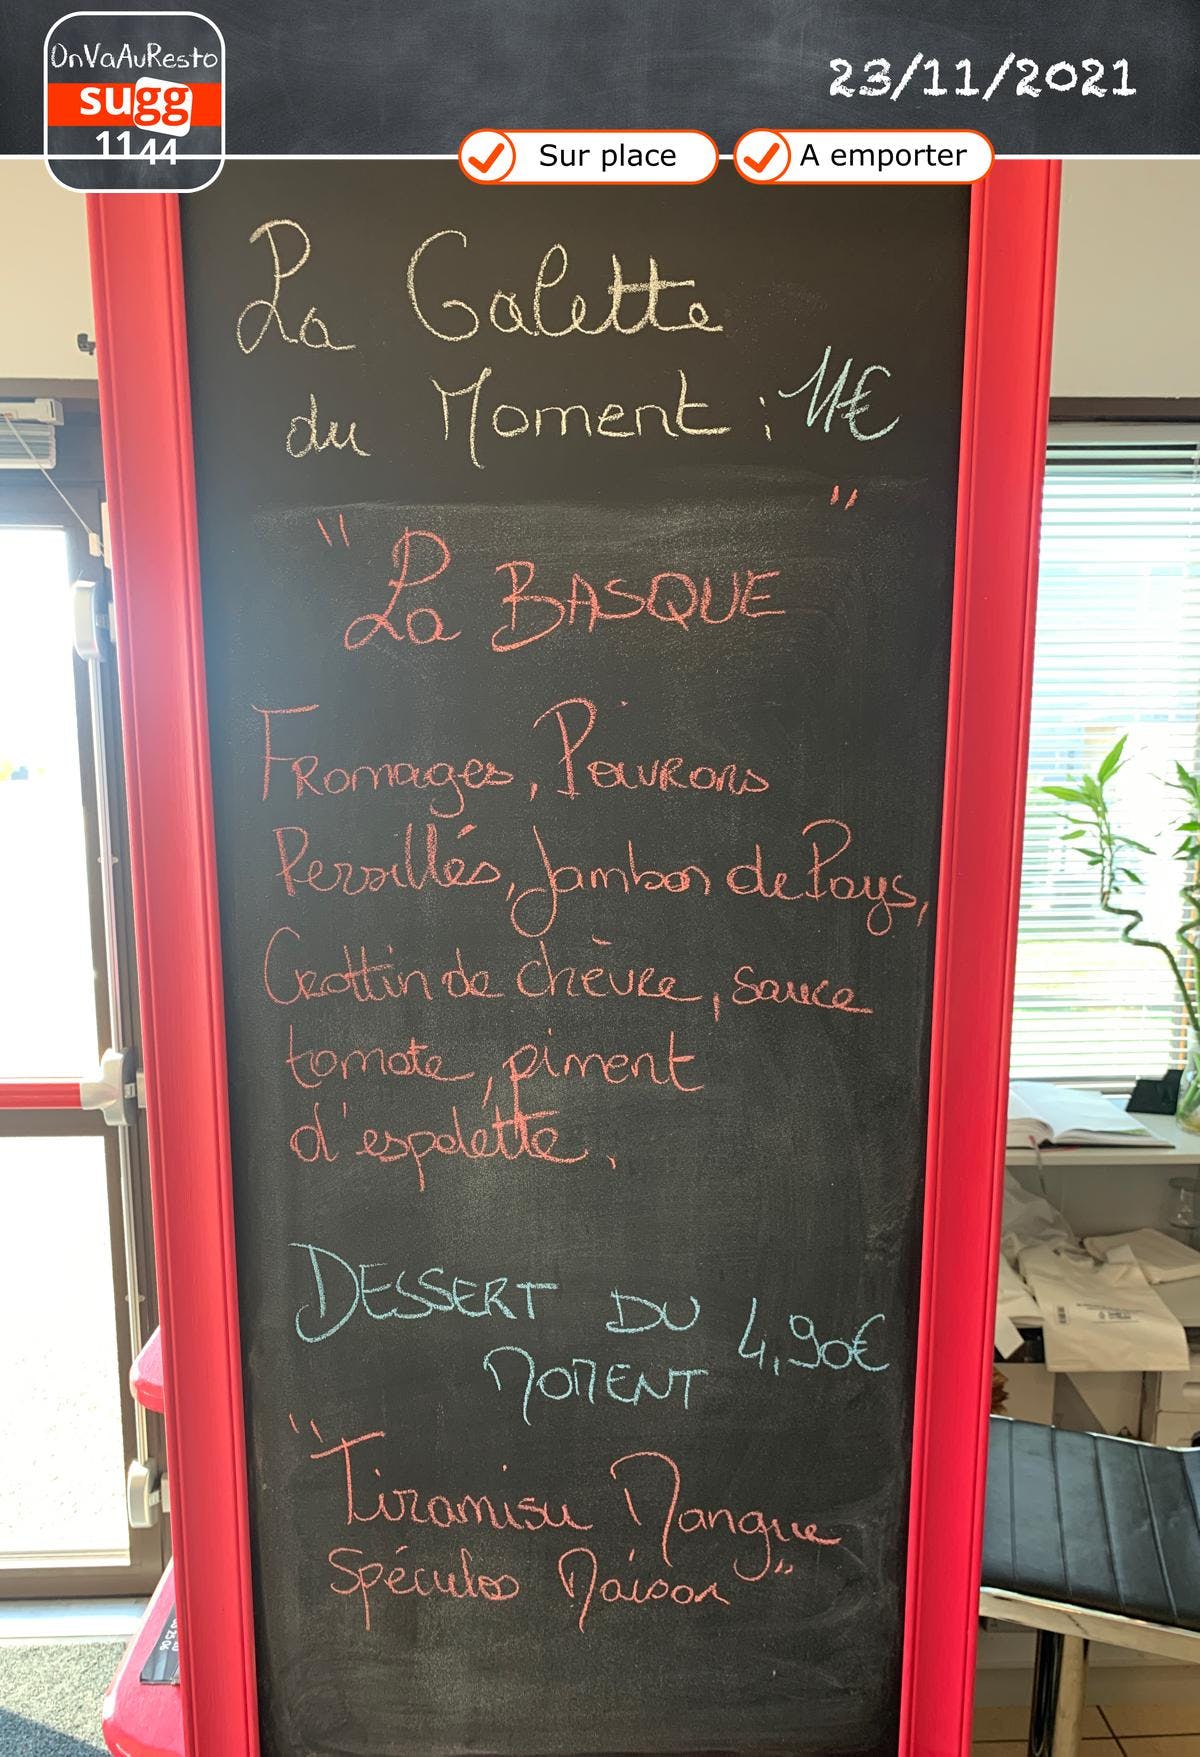 OnVaAuResto
sugg
1144
23/11/2021
Sur place
A emporter
La Galette
du Moment : 11€
"La BASQUE"
Fromages, Poivrons
Persillés, Jambon de Pays,
Crottin de chèvre, sauce
tomate, piment
d'espelette.
DESSERT DU
MOMENT 4,90€
"Tiramisu Mangue
Spéculos Maison"